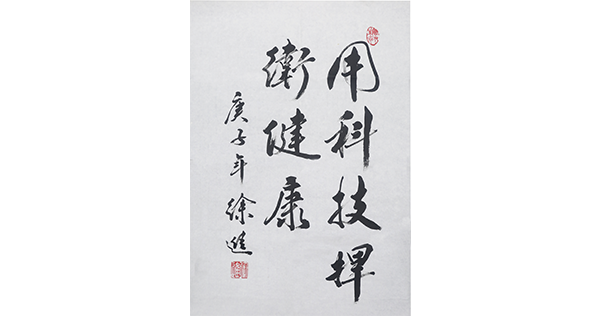 用科技捍
衛健康
庚子年徐進